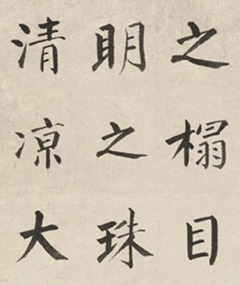 之榻目
明之珠
清凉大